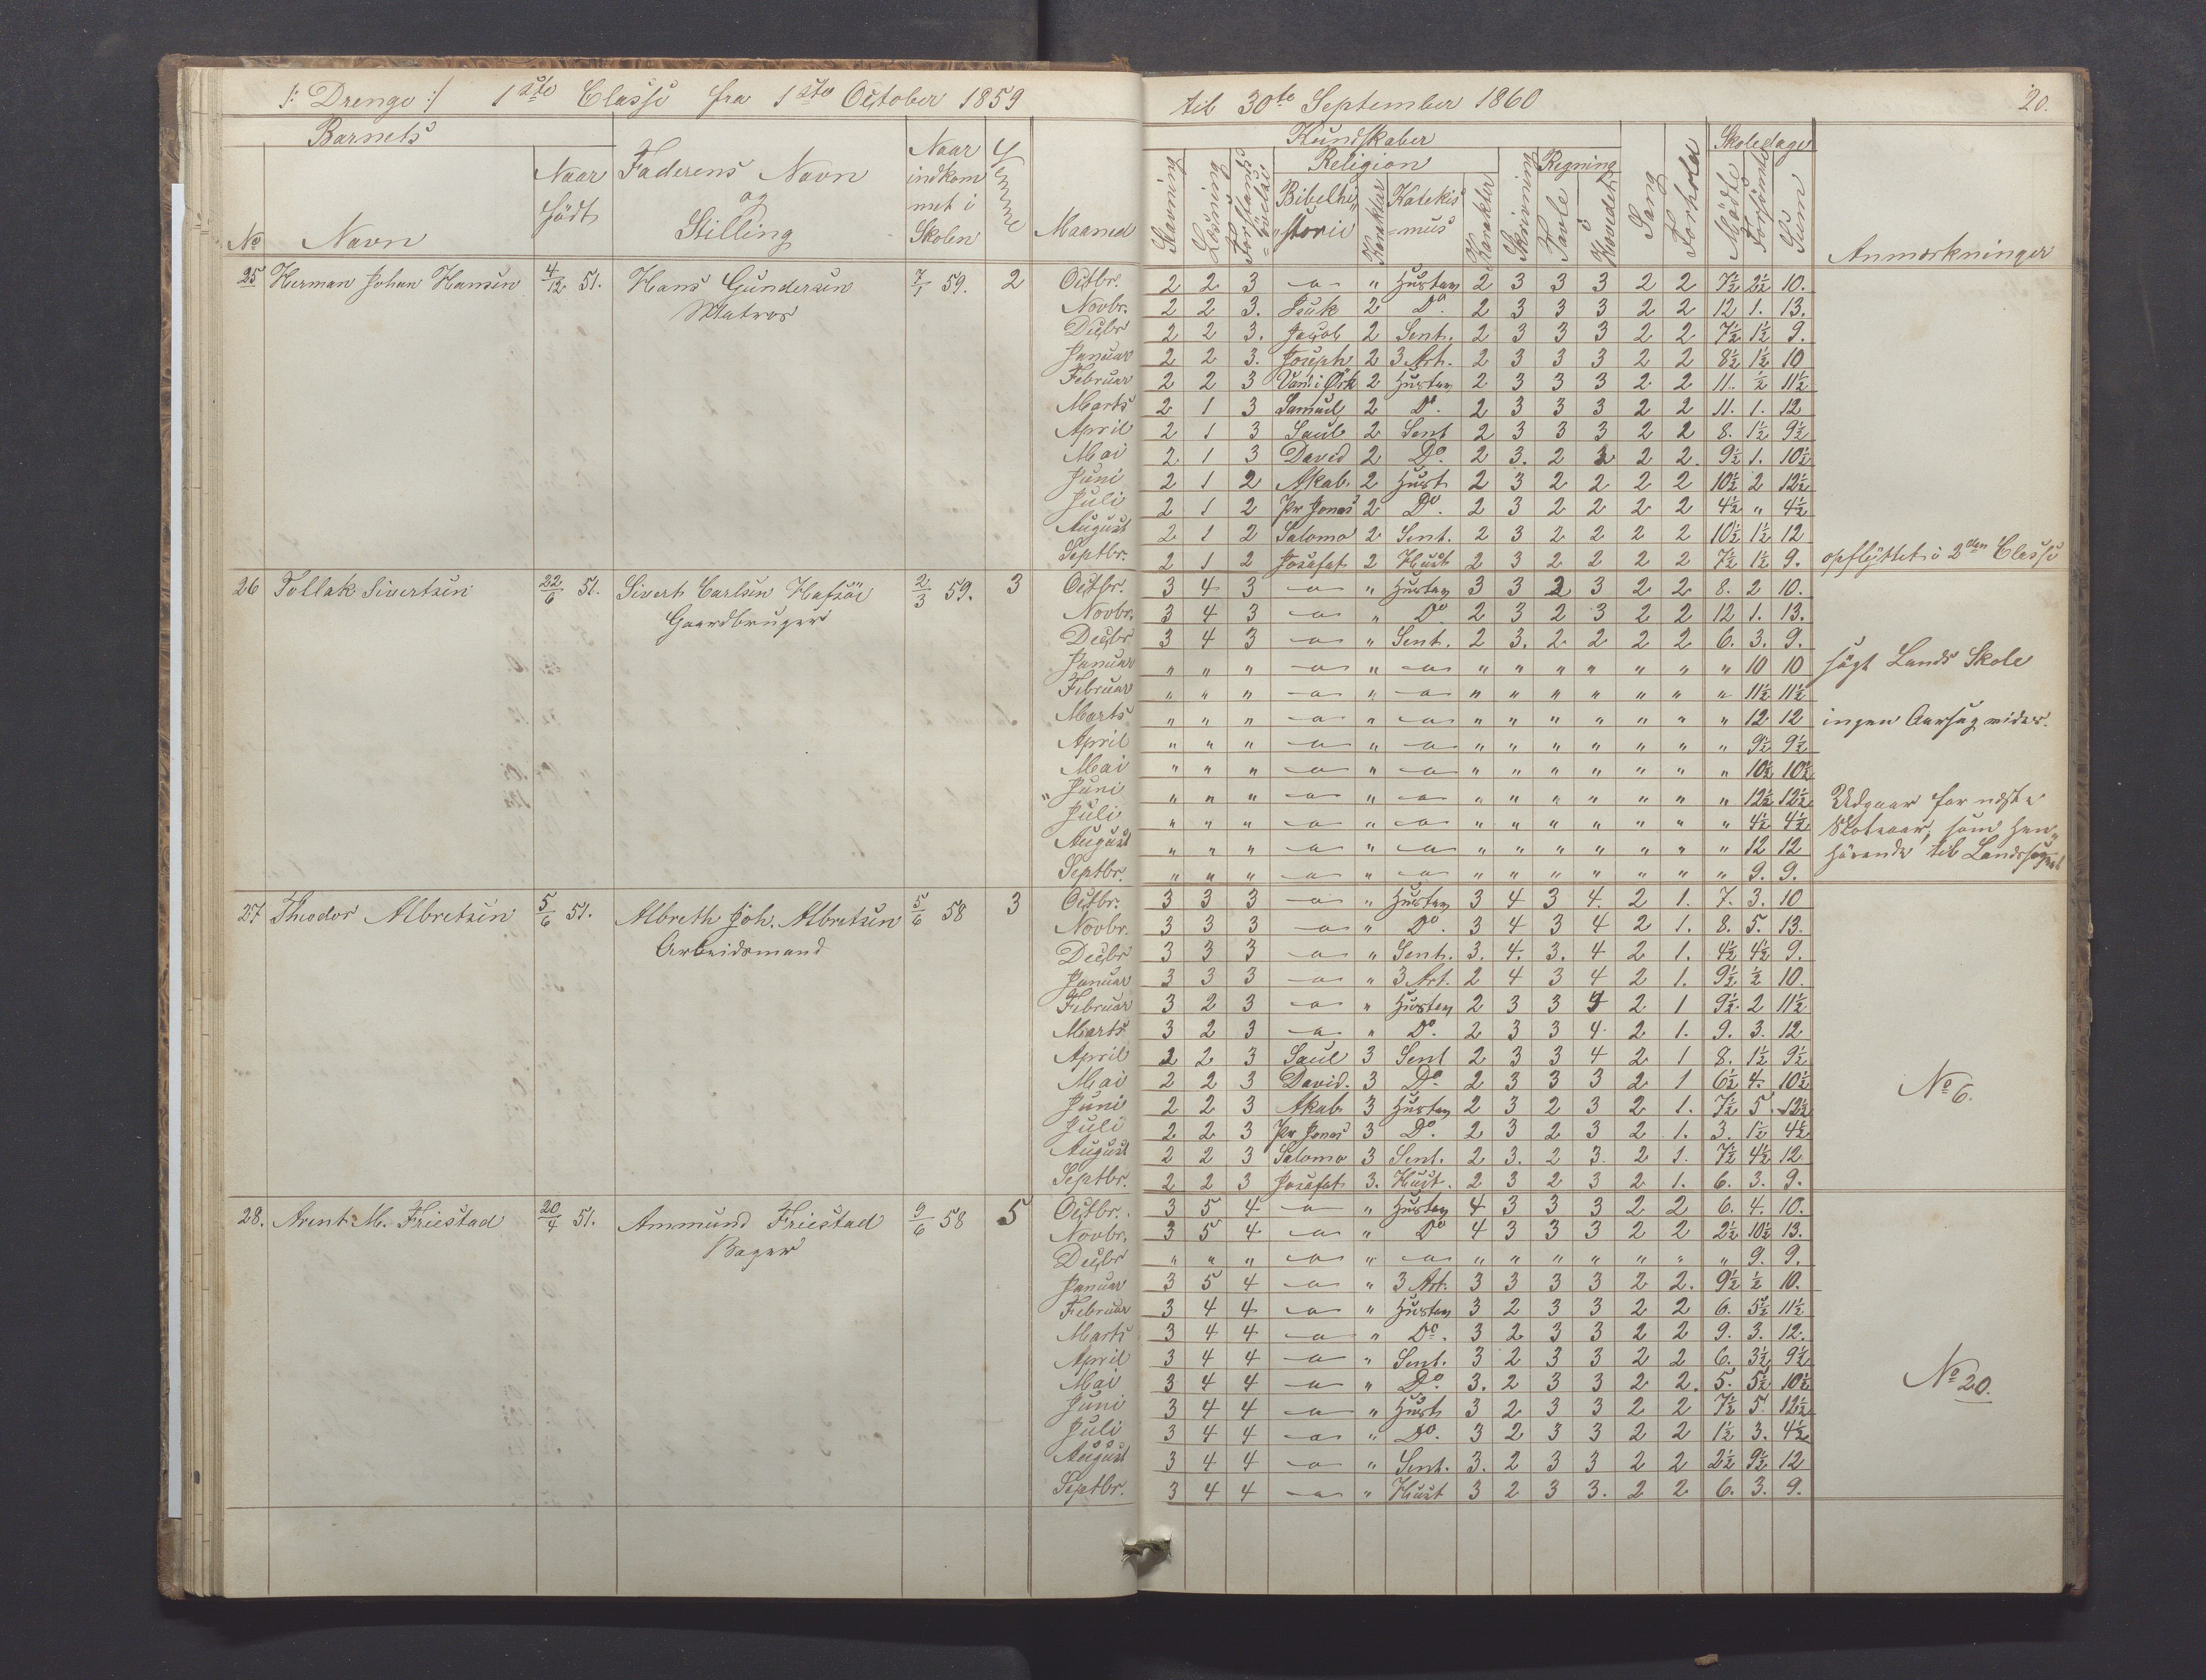 /: Drenge :/ 1ste Classe fra 1ste October 1859 til 30te September 1860 20.
Barnets
No Navn Naar födt Faderens Navn og Stilling Naar indkommet i Skolen Evne Maaned
Kundskaber
Religion Regning Skoledage
Stavning Læsning Forstands övelse Bibelhistorie Karakter Katekismus Karakter Skrivning Tavle Hovedet Sang Forhold Mödte Forsömte Sum Anmærkninger
25 Herman Johan Hansen 4/12 51. Hans Gundersen Matros 7/1 59. 2
Octbr. 2 2 3 — " Hustav 2 3 3 3 2 2 7½ 2½ 10.
Novbr. 2 2 3. Isak 2 Do. 2 3 3 3 2 2 12 1. 13.
Decbr 2 2 3. Jacob 2 Sent. 2 3 3 3 2 2 7½ 1½ 9.
Januar 2 2 3. Joseph 2 3 Art. 2 3 3 3 2 2 8½ 1½ 10
Februar 2 2 3 Vand. i Örk 2 Hustav 2 3 3 3 2 2 11. ½ 11½
Marts 2 1 3 Samuel 2 Do. 2 3 3 3 2 2 11. 1. 12
April 2 1 3 Saul 2 Sent 2 3 3 3 2 2 8. 1½ 9½
Mai 2 1 3 David 2 Do. 2 3. 2 3 2 2. 9½ 1. 10½
Juni 2 1 2 Akab. 2 Hust 2 3 2 2 2 2 10½ 2 12½
Juli 2 1 2 Pr Jonas 2 Do. 2 3 2 2 2 2 4½ " 4½
August 2 1 2 Salomo 2 Sent. 2 3 2 2 2 2 10½ 1½ 12
Septbr. 2 1 2 Josafat 2 Hust 2 3 2 2 2 2 7½ 1½ 9. opflyttet i 2den Classe
26 Tollak Sivertsen 22/6 51. Sivert Carlsen Hafsöe Gaardbruger 2/3 59. 3
Octbr. 3 4 3 — " Hustav 3 3 2 3 2 2 8. 2 10.
Novbr. 3 4 3 — " Do 2 3 2 3 2 2 12 1. 13.
Decbr 3 4 3 — " Sent. 2 3. 2 2 2 2 6. 3. 9.
Januar " " " — " — " " " " " " " 10 10 sögt Lands Skole
Februar " " " — " — " " " " " " " 11½ 11½
Marts " " " — " — " " " " " " " 12 12 ingen Aarsag vides.
April " " " — " — " " " " " " " 9½ 9½
Mai " " " — " — " " " " " " " 10½ 10½
" Juni " " " — " — " " " " " " " 12½ 12½ Udgaar for næste
Juli " " " — " — " " " " " " " 4½ 4½ Skoleaar, som hen„
August " " " — " — " " " " " " " 12 12 hörende til Landsognet
Septbr. " " " — " — " " " " " " " 9. 9.
27 Theodor Albretsen 5/6 51. Albreth Joh. Albretsen Arbeidsmand 5/6 58 3
Octbr. 3 3 3 — " Hustav 3 4 3 4. 2 1. 7. 3. 10
Novbr. 3 3 3 — " Do. 3 4 3 4 2 1. 8. 5. 13.
Decbr 3 3 3 — " Sent. 3. 4. 3. 4 2 1. 4½ 4½ 9.
Januar 3 3 3 — " 3 Art. 2 4 3 4 2 1. 9½ ½ 10.
Februar 3 2 3 — " Hustav 2 3 3 4 2 1 9½ 2 11½
Marts 3 2 3 — " Do. 2 3 3 4. 2 1. 9. 3. 12
April 2 2 3 Saul 3 Sent 2 3 3 4 2 1 8. 1½ 9½
Mai 2 2 3 David. 3 Do. 2 3 3 3 2 1 6½ 4. 10½ No 6.
Juni 2 2 3 Akab 3 Hustav 2 3 2 3 2 1. 7½ 5. 12½
Juli 2 2 3 Pr Jonas 3 Do. 2 3 2 3 2 1. 3. 1½ 4½
August 2 2 3 Salomo 3 Sent. 2 3. 2 3. 2 1. 7½ 4½ 12
Septbr. 2 2 3 Josafat 3. Hust. 2 3 2 3 2 1. 6. 3. 9.
28. Arent M. Friestad 20/4 51. Ammund Friestad Bager 9/6 58 5
Octbr. 3 5 4 — " Hustav 4 3 3 3 2 2 6. 4. 10.
Novbr. 3 5 4 — " Do 4 3 3 3 2 2 2½ 10½ 13.
Decbr " " " — " — " " " " " " " 9. 9.
Januar 3 5 4 — " 3 Art. 3 3 3 3 2 2. 9½ ½ 10.
Februar 3 4 4 — " Hustav 3 2 3 3 2 2 6. 5½ 11½
Marts 3 4 4 — " Do. 3 2 3 3 2 2 9. 3. 12.
April 3 4 4 — " Sent. 3 2 3 3 2 2 6. 3½ 9½
Mai 3 4 4 — " Do. 3. 2 3 3 2 2. 5. 5½ 10½ No 20.
Juni 3 4 4 — " Hust 3 2 3 3 2 2 7½ 5. 12½
Juli 3 4 4 — " Do. 3 2 3 3 2 2 1½ 3. 4½
August 3 4 4 — " Sent. 3. 2 3 3 2 2 2½ 9½ 12
Septbr. 3 4 4 — " Hust 3 2 3 3. 2 2 6. 3. 9.